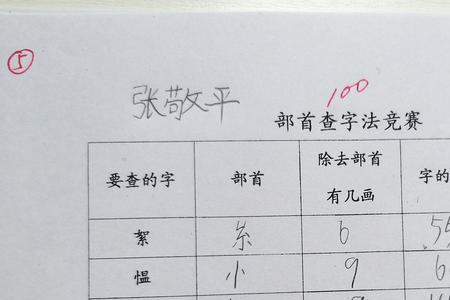 ⑤
张敬平
100
部首查字法竞赛
要查的字 部首 除去部首有几画 字的
絮 糸 6 .55
愠 忄 9 6